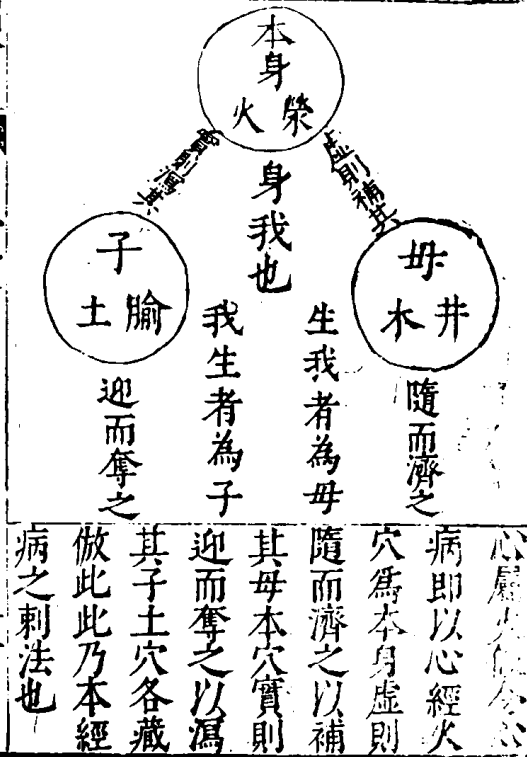 本身
榮火
虛則補其
實則瀉其
身我也
母
井木
子
腧土
隨而濟之
生我者為母
我生者為子
迎而奪之
心屬火令心
病即以心經火
穴爲本身虛則
隨而濟之以補
其母本穴實則
迎而奪之以瀉
其子土穴各藏
倣此此乃本經
病之刺法也